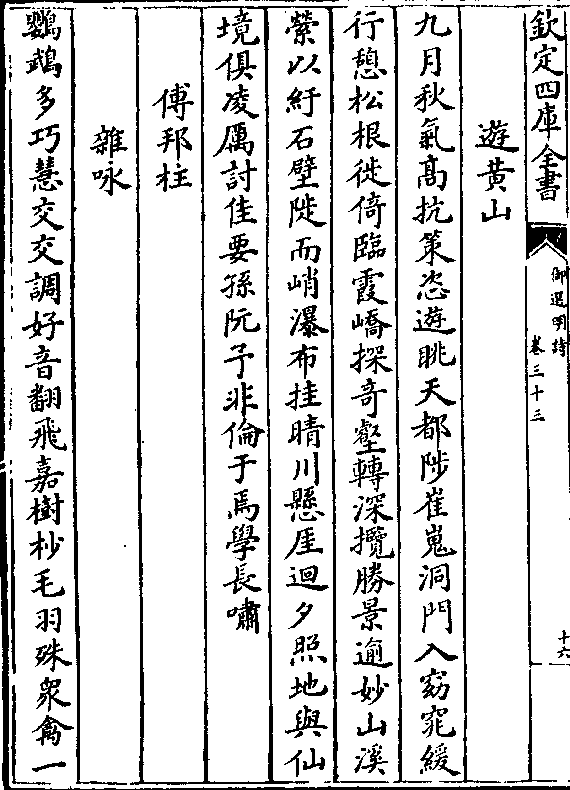 欽定四庫全書
御選明詩
卷三十三
十六
遊黃山
九月秋氣高抗策恣遊眺天都陟崔嵬洞門入窈窕緩
行憩松根徙倚臨霞嶠探奇壑轉深攬勝景逾妙山溪
縈以紆石壁陡而峭瀑布挂晴川懸厓迴夕照地與仙
境俱凌厲討佳要孫阮予非倫于焉學長嘯
傅邦柱
雜咏
鸚鵡多巧慧交交調好音翻飛嘉樹杪毛羽殊眾禽一